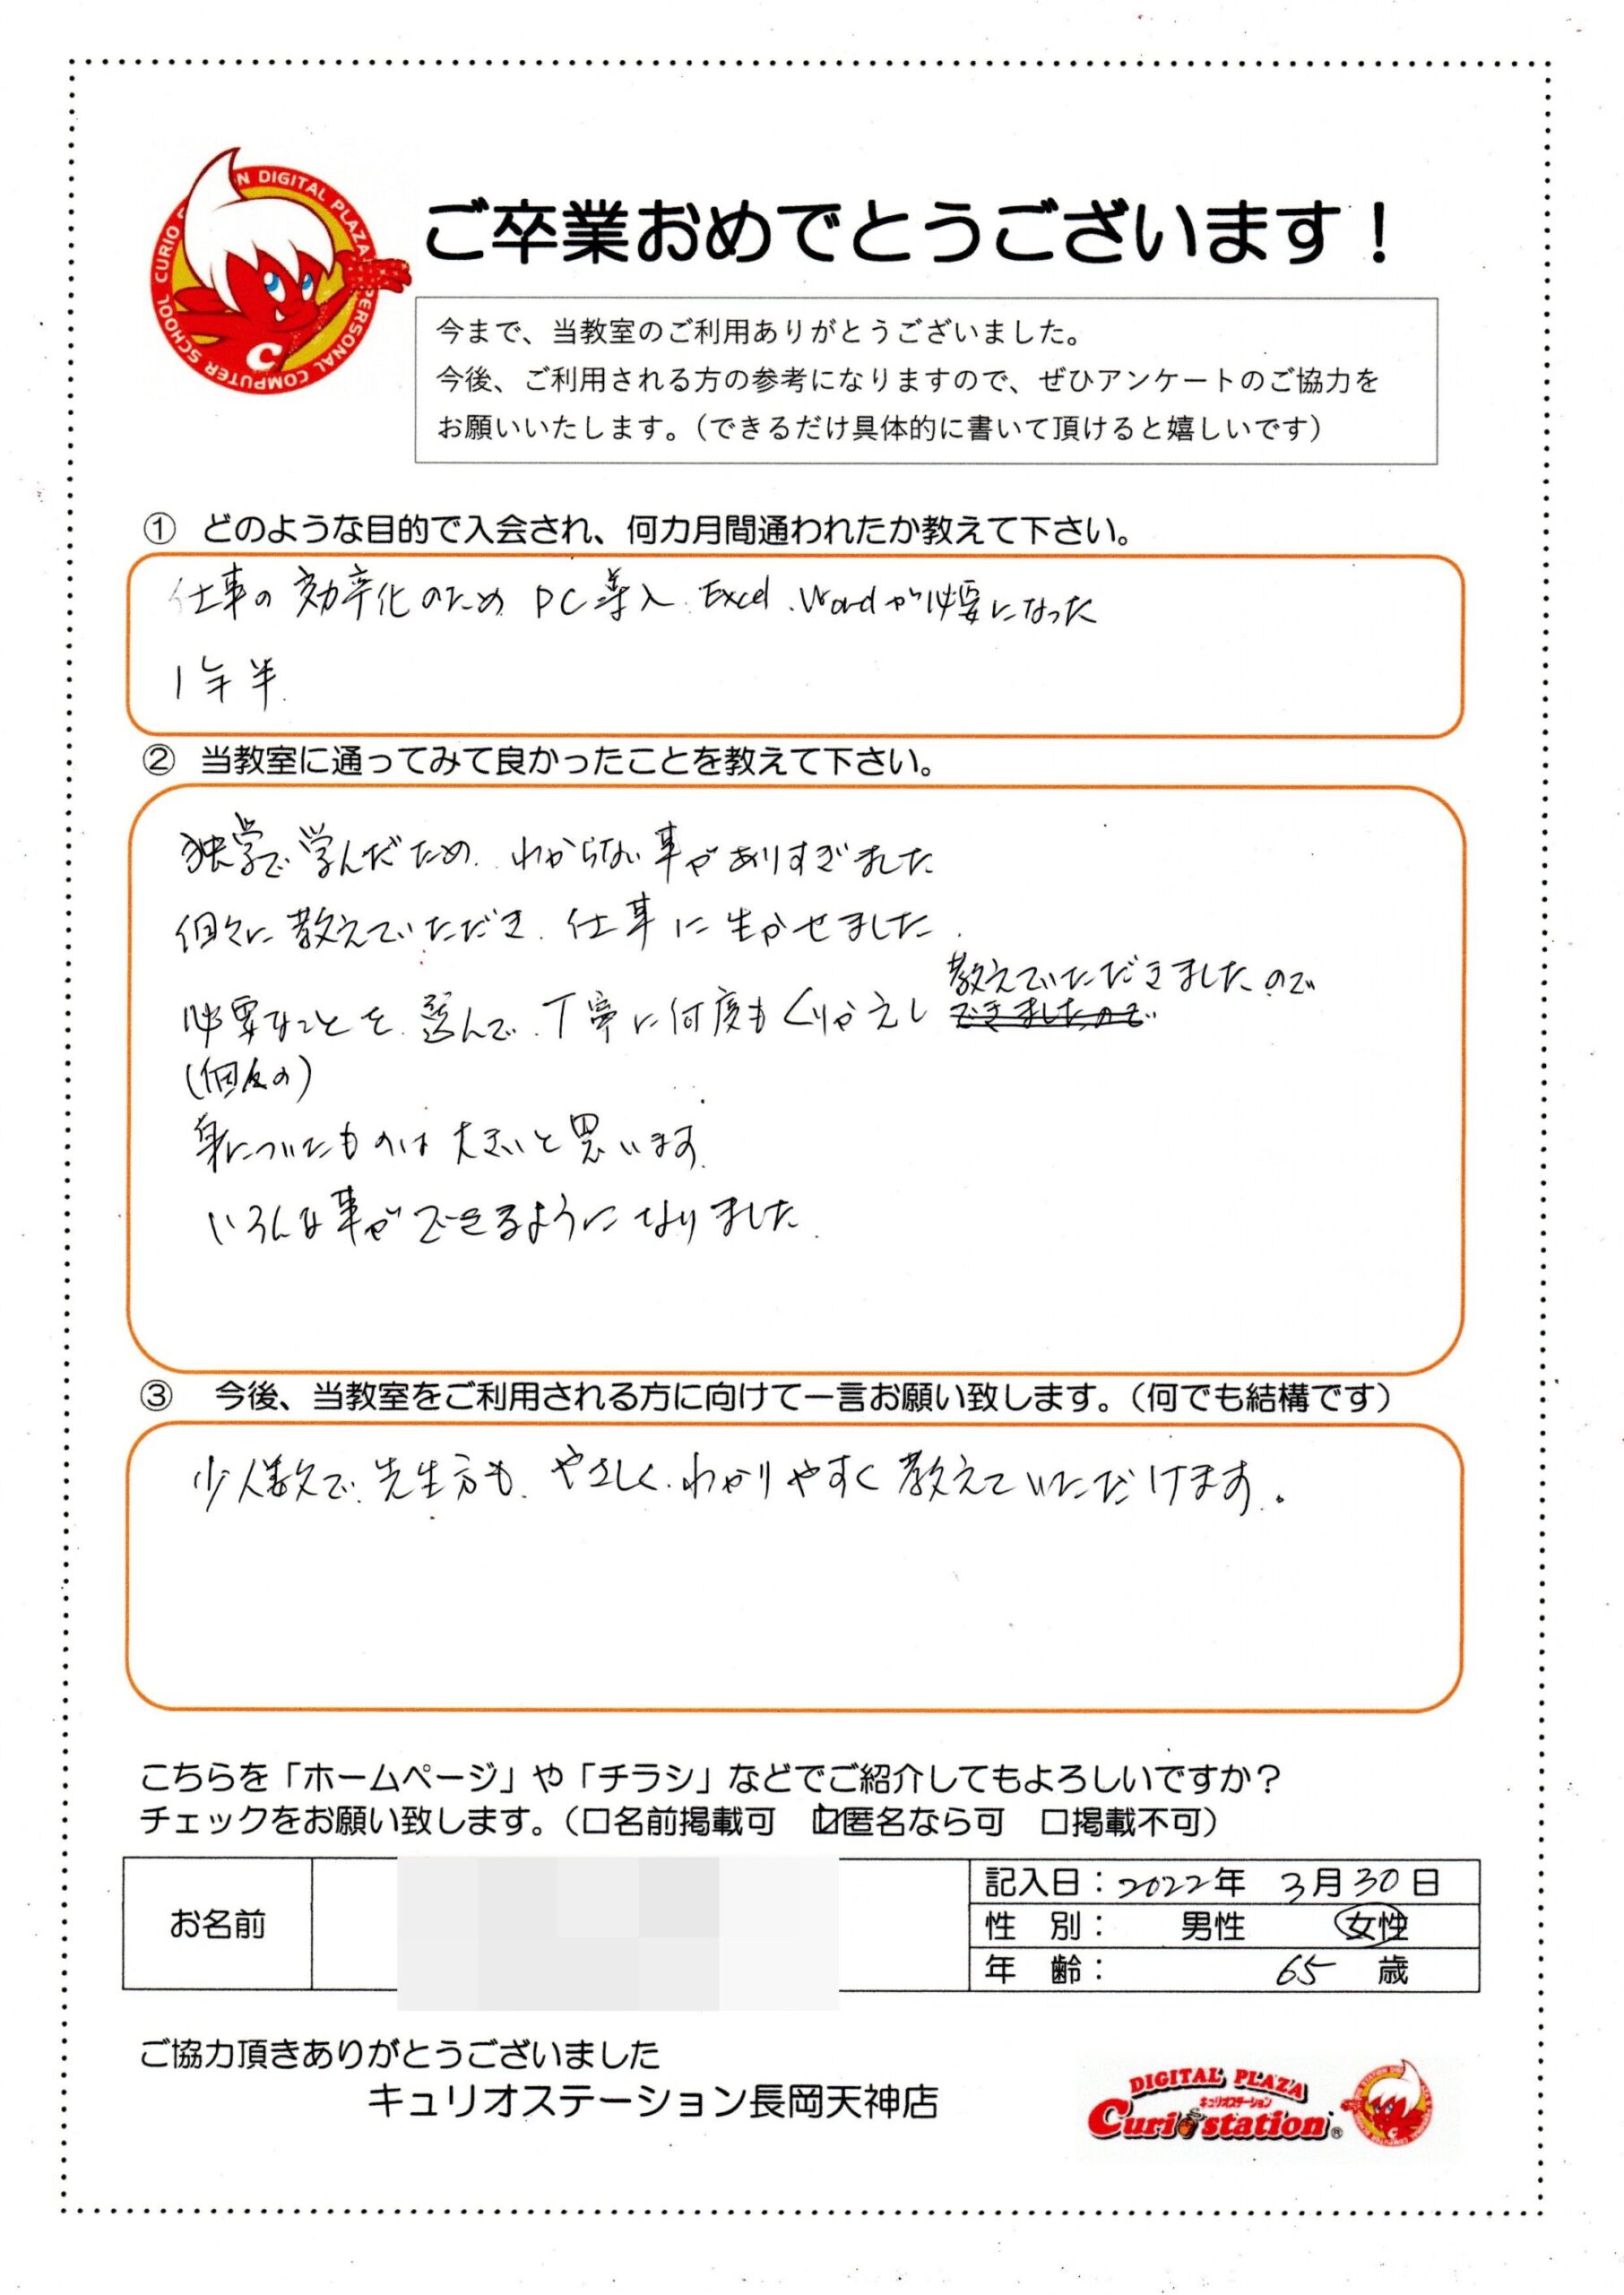 CURIO STATION DIGITAL PLAZA PERSONAL COMPUTER SCHOOL
C
ご卒業おめでとうございます！
今まで、当教室のご利用ありがとうございました。
今後、ご利用される方の参考になりますので、ぜひアンケートのご協力を
お願いいたします。（できるだけ具体的に書いて頂けると嬉しいです）
① どのような目的で入会され、何カ月間通われたか教えて下さい。
仕事の効率化のため PC導入. Excel、Wordが必要になった
1年半.
② 当教室に通ってみて良かったことを教えて下さい。
独学で学んだため、わからない事がありすぎました
個々に教えていただき、仕事に生かせました.
教えていただきましたので
必要なことを、選んで、丁寧に何度もくりかえし できましたので
(個々の)
身についたものは大きいと思います.
いろんな事ができるようになりました.
③ 今後、当教室をご利用される方に向けて一言お願い致します。（何でも結構です）
少人数で、先生方も、やさしく、わかりやすく教えていただけます。
こちらを「ホームページ」や「チラシ」などでご紹介してもよろしいですか？
チェックをお願い致します。（□名前掲載可 ☑匿名なら可 □掲載不可）
お名前
記入日：2022年 3月30日
性 別： 男性 女性
年 齢： 65 歳
ご協力頂きありがとうございました
キュリオステーション長岡天神店
DIGITAL PLAZA
キュリオステーション
Curio station®